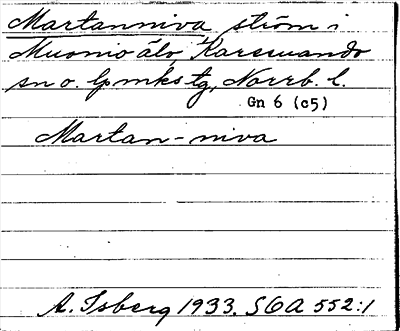 Martanniva, ström i
Muonio älv, Karesuando
sn o. lpmks tg, Norrb. l.
Gn 6 (c5)
Martan-niva
A. Isberg 1933. SOA 552:1